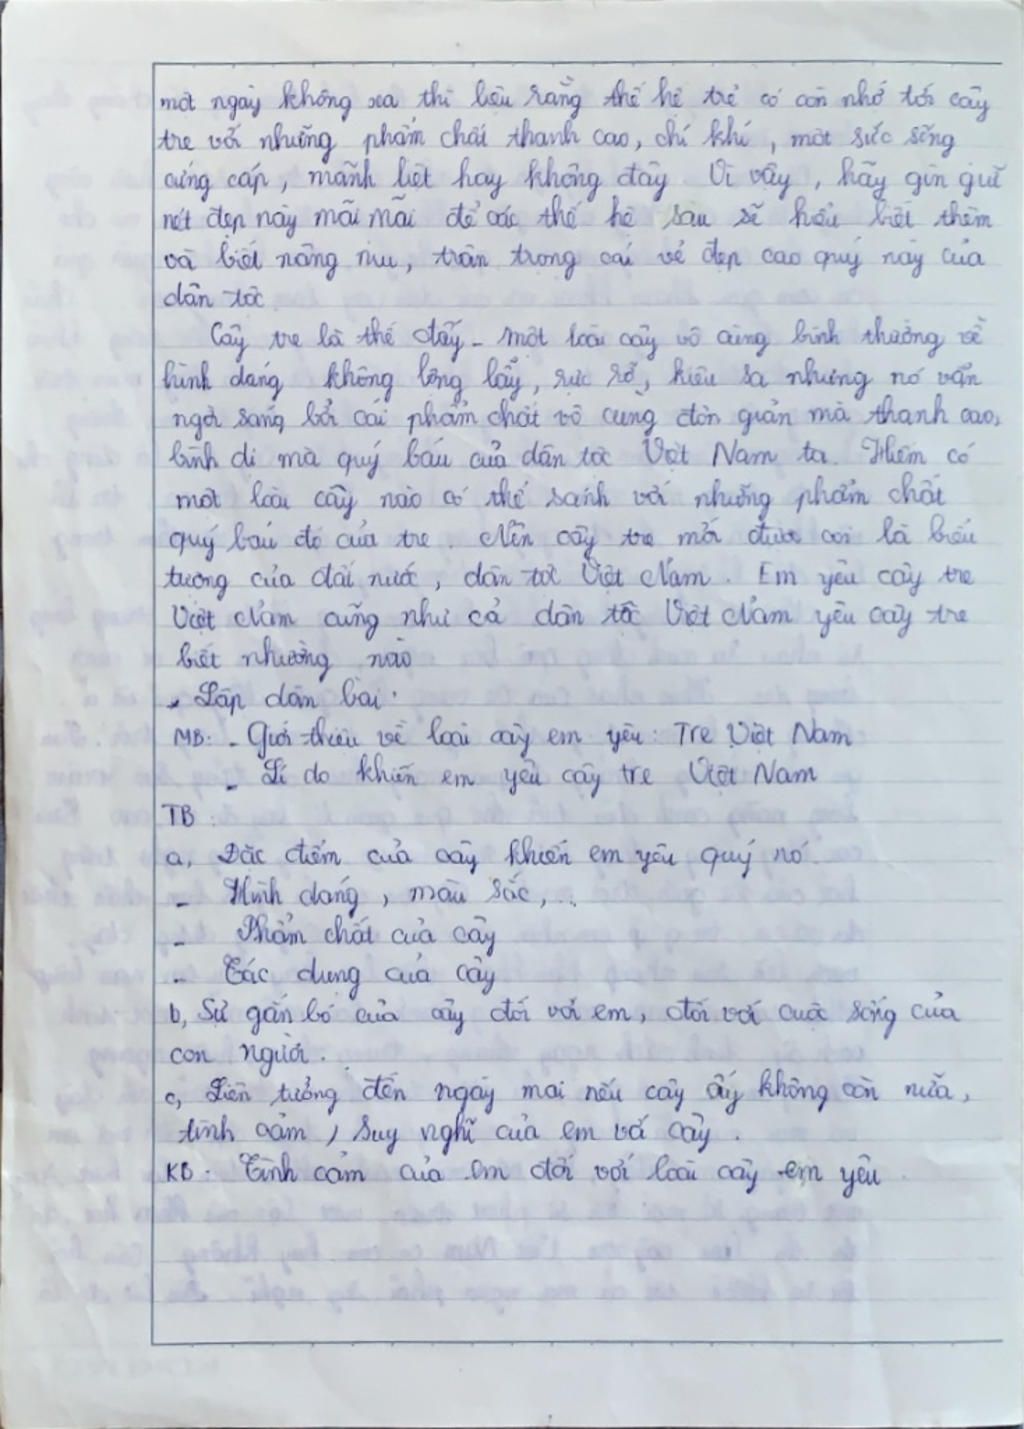 một ngày không xa thì liệu rằng thế hệ trẻ có còn nhớ tới cây
tre với những phẩm chất thanh cao, chí khí, một sức sống
cứng cáp, mãnh liệt hay không đây. Vì vậy, hãy gìn giữ
nét đẹp này mãi mãi để các thế hệ sau sẽ hiểu biết thêm
và biết nâng niu, trân trọng cái vẻ đẹp cao quý này của
dân tộc.
Cây tre là thế đấy - một loài cây vô cùng bình thường về
hình dáng, không lộng lẫy, rực rỡ, kiêu sa nhưng nó vẫn
ngời sáng bởi cái phẩm chất vô cùng đơn giản mà thanh cao,
bình dị mà quý báu của dân tộc Việt Nam ta. Hiếm có
một loài cây nào có thể sánh với những phẩm chất
quý báu đó của tre. Nên cây tre mới được coi là biểu
tượng của đất nước, dân tộc Việt Nam. Em yêu cây tre
Việt Nam cũng như cả dân tộc Việt Nam yêu cây tre
biết nhường nào
* Lập dàn bài:
MB: - Giới thiệu về loài cây em yêu: Tre Việt Nam
- Lí do khiến em yêu cây tre Việt Nam
TB:
a, Đặc điểm của cây khiến em yêu quý nó.
- Hình dáng, màu sắc,...
- Phẩm chất của cây
- Tác dụng của cây
b, Sự gắn bó của cây đối với em, đối với cuộc sống của
con người.
c, Liên tưởng đến ngày mai nếu cây ấy không còn nữa,
tình cảm, suy nghĩ của em với cây.
KB: Tình cảm của em đối với loài cây em yêu.